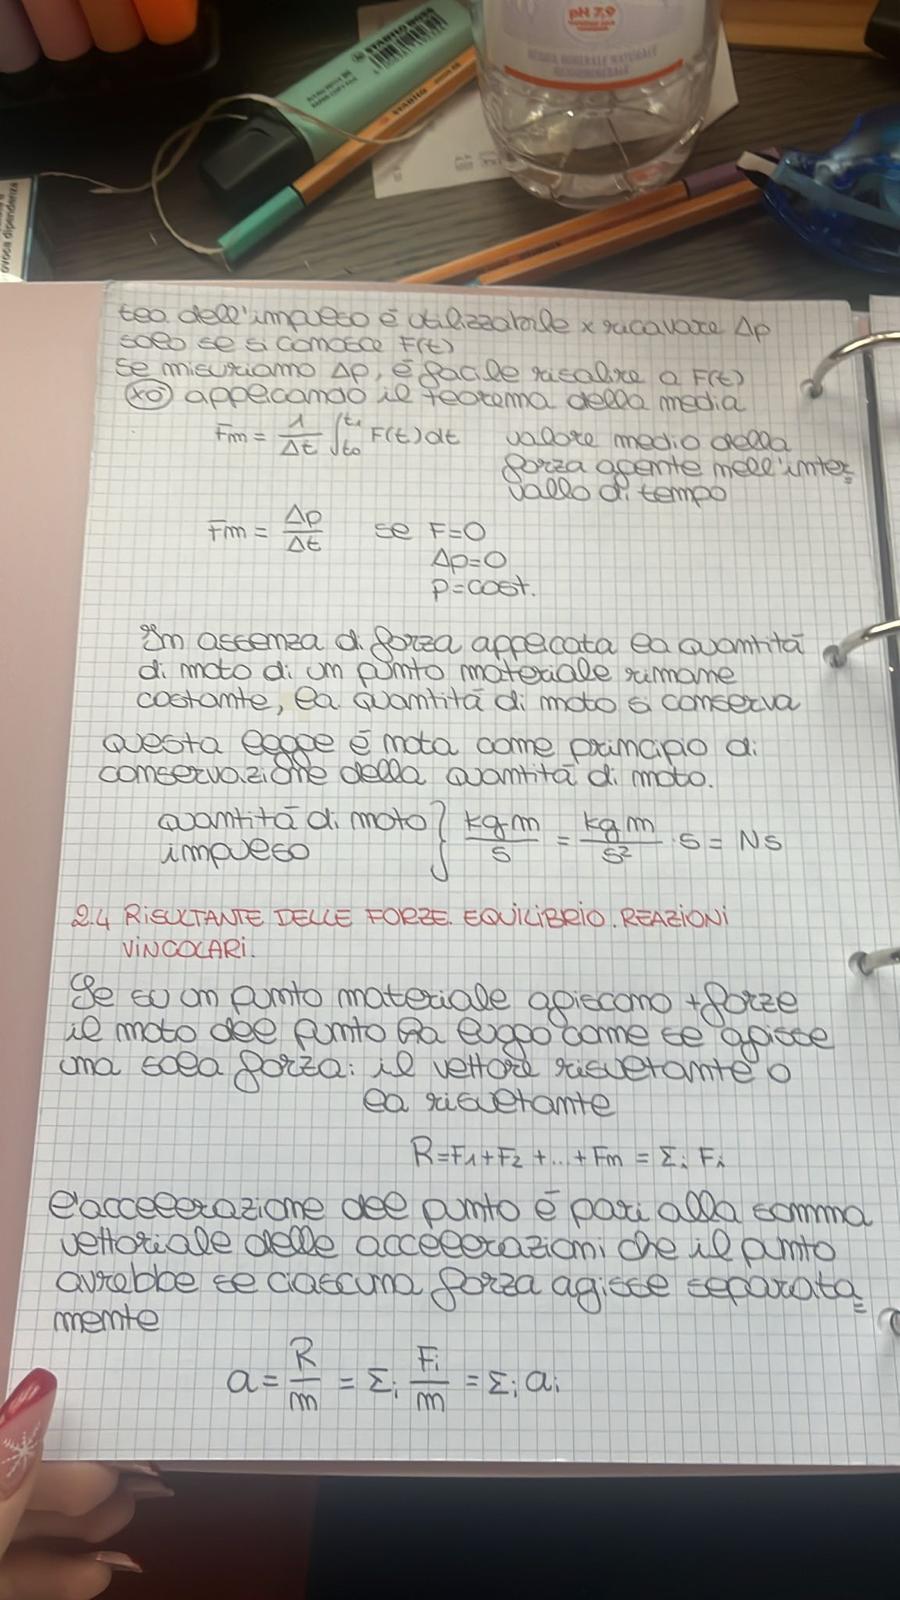 pH 7,9
ACQUA MINERALE NATURALE
STABILO BOSS
STABILO
provoca dipendenza
teo dell'impulso è utilizzabile x ricavare Δp
solo se si conosce F(t)
se misuriamo Δp, è facile risalire a F(t)
xò applicando il teorema della media
Fm = 1/Δt ∫t₀^t₁ F(t)dt valore medio della
forza agente nell'inter=
vallo di tempo
Fm = Δp/Δt se F=0
Δp=0
p=cost.
In assenza di forza applicata la quantità
di moto di un punto materiale rimane
costante, la quantità di moto si conserva
questa legge è nota come principio di
conservazione della quantità di moto.
quantità di moto } kg m/s = kg m/s² · s = Ns
impulso
2.4 RISULTANTE DELLE FORZE. EQUILIBRIO. REAZIONI
VINCOLARI.
Se su un punto materiale agiscono + forze
il moto del punto ha luogo come se agisse
una sola forza: il vettore risultante o
la risultante
R=F₁+F₂ +...+Fn = Σi Fi
l'accelerazione del punto è pari alla somma
vettoriale delle accelerazioni che il punto
avrebbe se ciascuna forza agisse separata=
mente
a = R/m = Σi Fi/m = Σi ai